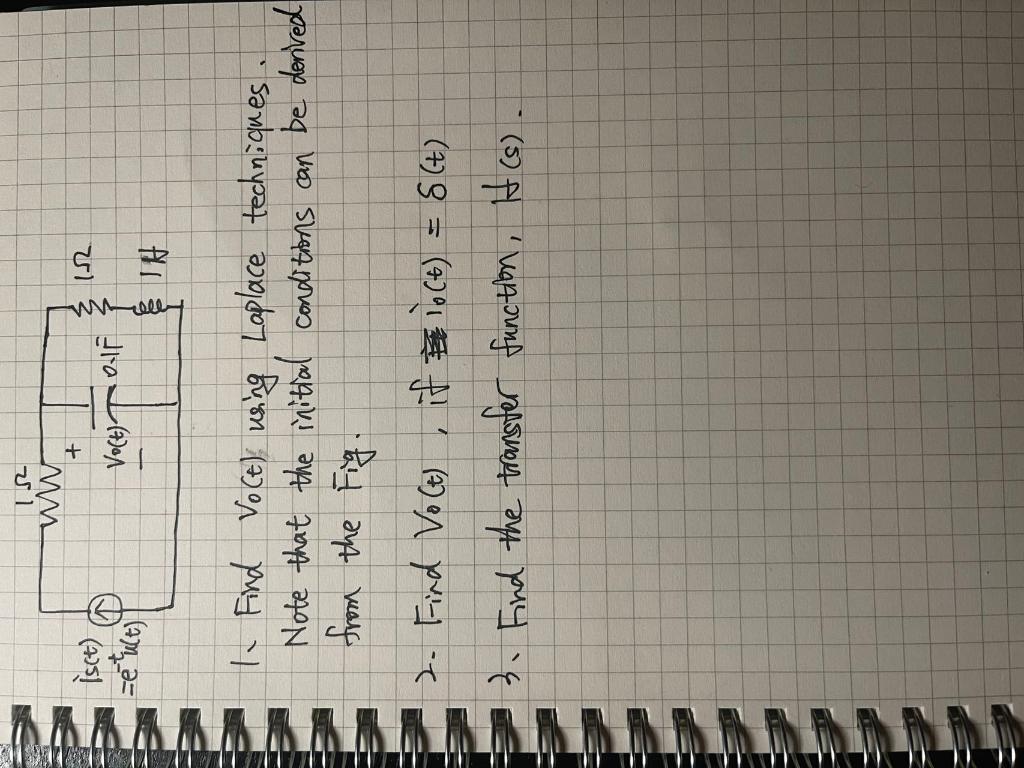 1Ω
is(t)
=e⁻ᵗu(t)
+
Vo(t)
−
0.1F
1Ω
1H
1、Find Vo(t) using Laplace techniques.
Note that the initial conditions can be derived
from the Fig.
2. Find Vo(t), if io(t) = δ(t)
3、Find the transfer function, H(s).